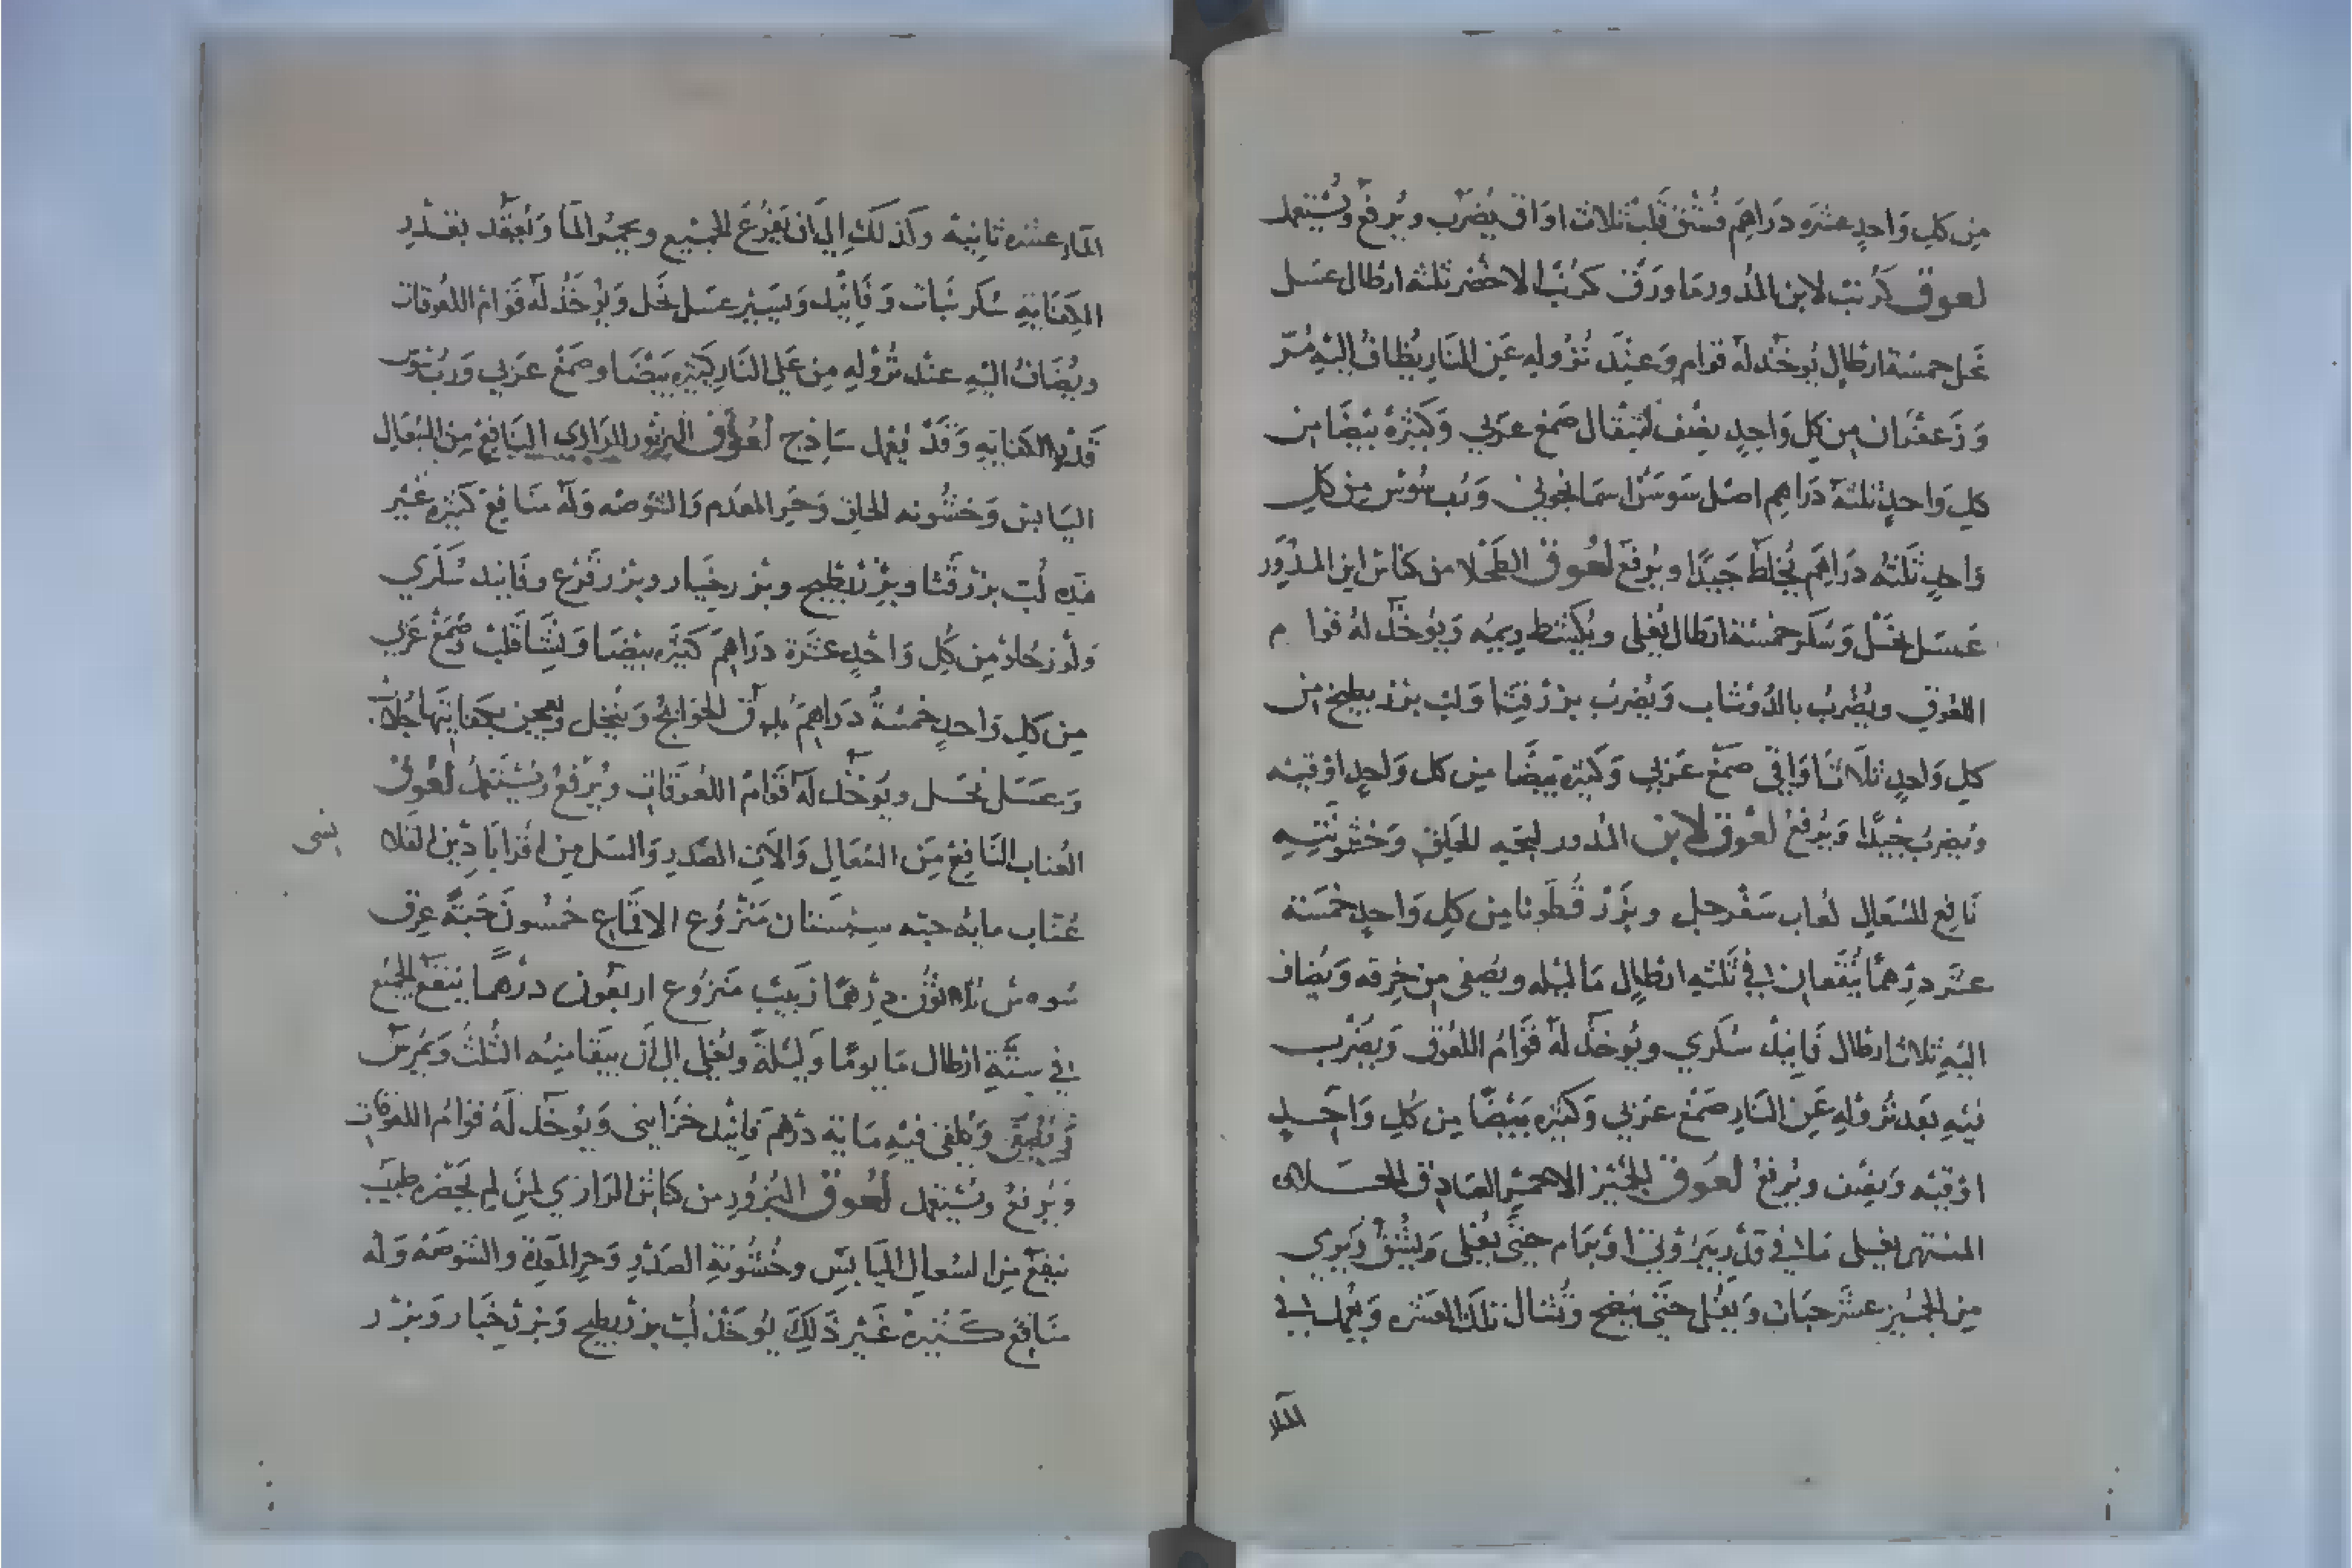 من كل واحد عشره دراهم فستق قلب ثلاث اواق يضرب ويرفع ويستعمل
لعوق كرنب لابن المدور ما ورق كرنب الاخضر ثلثه ارطال عسل
نحل خمسة ارطال يوخذ له قوام وعند نزوله عن النار يظاف اليه مر
وزعفران من كل واحد نصف مثقال صمغ عربي وكثيره بيضا من
كل واحد ثلثه دراهم اصل سوسن اسمانجوني ورب سوس من كل
واحد ثلثه دراهم يخلط جيدا ويرفع لعوق الطحلا من كناش ابن المدور
عسل نحل وسكر خمسة ارطال يغلى ويكشط ريمه ويوخذ له قوام
اللعوق ويضرب بالدوشاب ويضرب بزر قثا ولب بزر بطيخ من
كل واحد ثلاثا واقي صمغ عربي وكثيره بيضا من كل واحد اوقيه
ويضرب جيدا ويرفع لعوق لابن المدور لبحه الحلق وخشونته
نافع للسعال لعاب سفرجل وبزر قطونا من كل واحد خمسة
عشر درهما ينقعان في ثلثه ارطال ما ليله ويصفى من خرقه ويضاف
اليه ثلاث ارطال فانيد سكري ويوخذ له قوام اللعوق ويضرب
فيه بعد نزوله عن النار صمغ عربي وكثيره بيضا من كل واحد
اوقيه ونصف ويرفع لعوق الجميز الاحمر الصادق الحلاه
المنتهى يغلى ما في قدر حتى يغلى
من الجميز عشر حبات ويغلى حتى ينضج وتشال تلك العشره ويعمل في
الماء
الماء عشره ثانيه وكذلك الى ان يفرغ الجميع ويحمر الما ويعقد بقدر
الكفايه سكر نبات وفانيد ويسير عسل نحل ويوخذ له قوام اللعوقات
ويضاف اليه عند نزوله من على النار كثيره بيضا وصمغ عربي ورب سوس
قدر الكفايه وقد يعمل ساذج لعوق البزور للرازي النافع من السعال
اليابس وخشونه الحلق وحر المعدم والشوصه وله منافع كثيره غير
هذه لب بزر قثا وبزر بطيخ وبزر خيار وبزر قرع وفانيد سكري
ولوز حلو من كل واحد عشرة دراهم كثيره بيضا ونشا قلب وصمغ عربي
من كل واحد خمسة دراهم يدق الحوايج وينخل ويعجن بكفايتها جلاب
وعسل نحل ويوخذ له قوام اللعوقات ويرفع ويستعمل لعوق
العناب النافع من السعال والالام الصدر والسل من اقراباذين القلا
نسى
عناب مايه حبه سبستان منزوع الاقماع خمسون حبة عرق
سوس ثلاثون درهما زبيب منزوع اربعون درهما ينقع الجميع
في ستة ارطال ما يوما وليلة ويغلي الى ان يبقا منه الثلث ويمرس
ويلقى فيه ماية درهم فانيد خزايني ويوخذ له قوام اللعوقات
ويرفع ويستعمل لعوق البزور من كناش الرازي لمن لم يحضره طبيب
ينفع من السعال اليابس وخشونة الصدر وحر المعدة والشوصه وله
منافع كثيرة غير ذلك يوخذ لب بزر بطيخ وبزر خيار وبزر